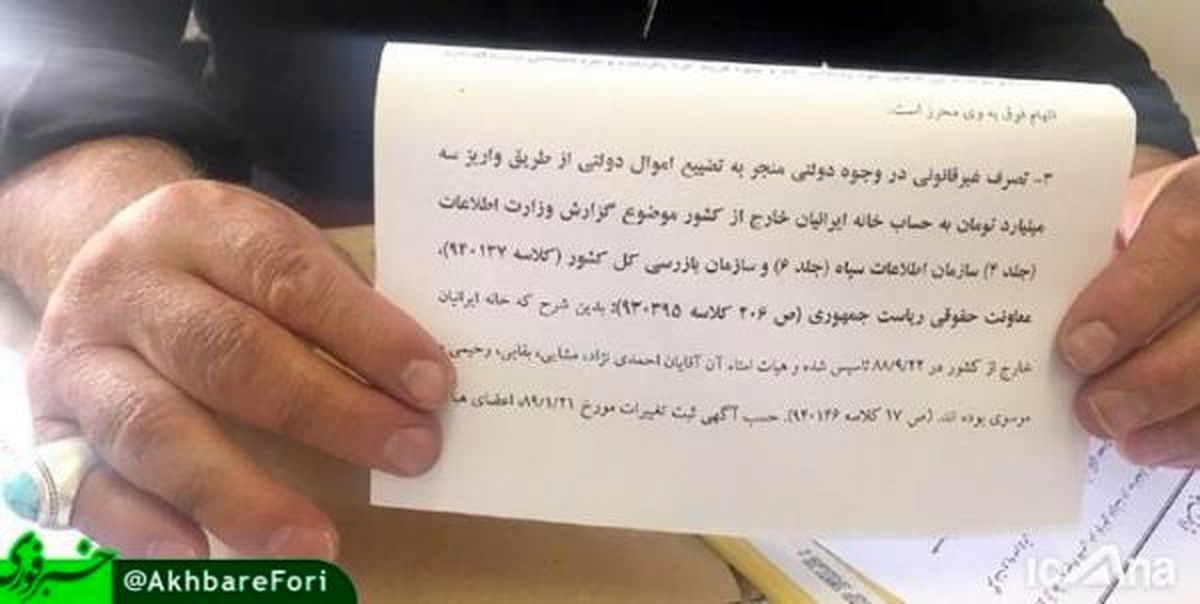 اتهام فوق به وی محرز است.
۳- تصرف غیرقانونی در وجوه دولتی منجر به تضییع اموال دولتی از طریق واریز سه
میلیارد تومان به حساب خانه ایرانیان خارج از کشور موضوع گزارش وزارت اطلاعات
(جلد ۴) سازمان اطلاعات سپاه (جلد ۶) و سازمان بازرسی کل کشور (کلاسه ۹۴۰۱۳۷)،
معاونت حقوقی ریاست جمهوری (ص ۲۰۶ کلاسه ۹۳۰۳۹۵): بدین شرح که خانه ایرانیان
خارج از کشور در ۸۸/۹/۲۲ تاسیس شده و هیات امناء آن آقایان احمدی نژاد، مشایی، بقایی، رحیمی
موسوی بوده اند. (ص ۱۷ کلاسه ۹۴۰۱۴۶). حسب آگهی ثبت تغییرات مورخ ۸۹/۱/۲۱، اعضای
خبرفوری
@AkhbareFori
icana